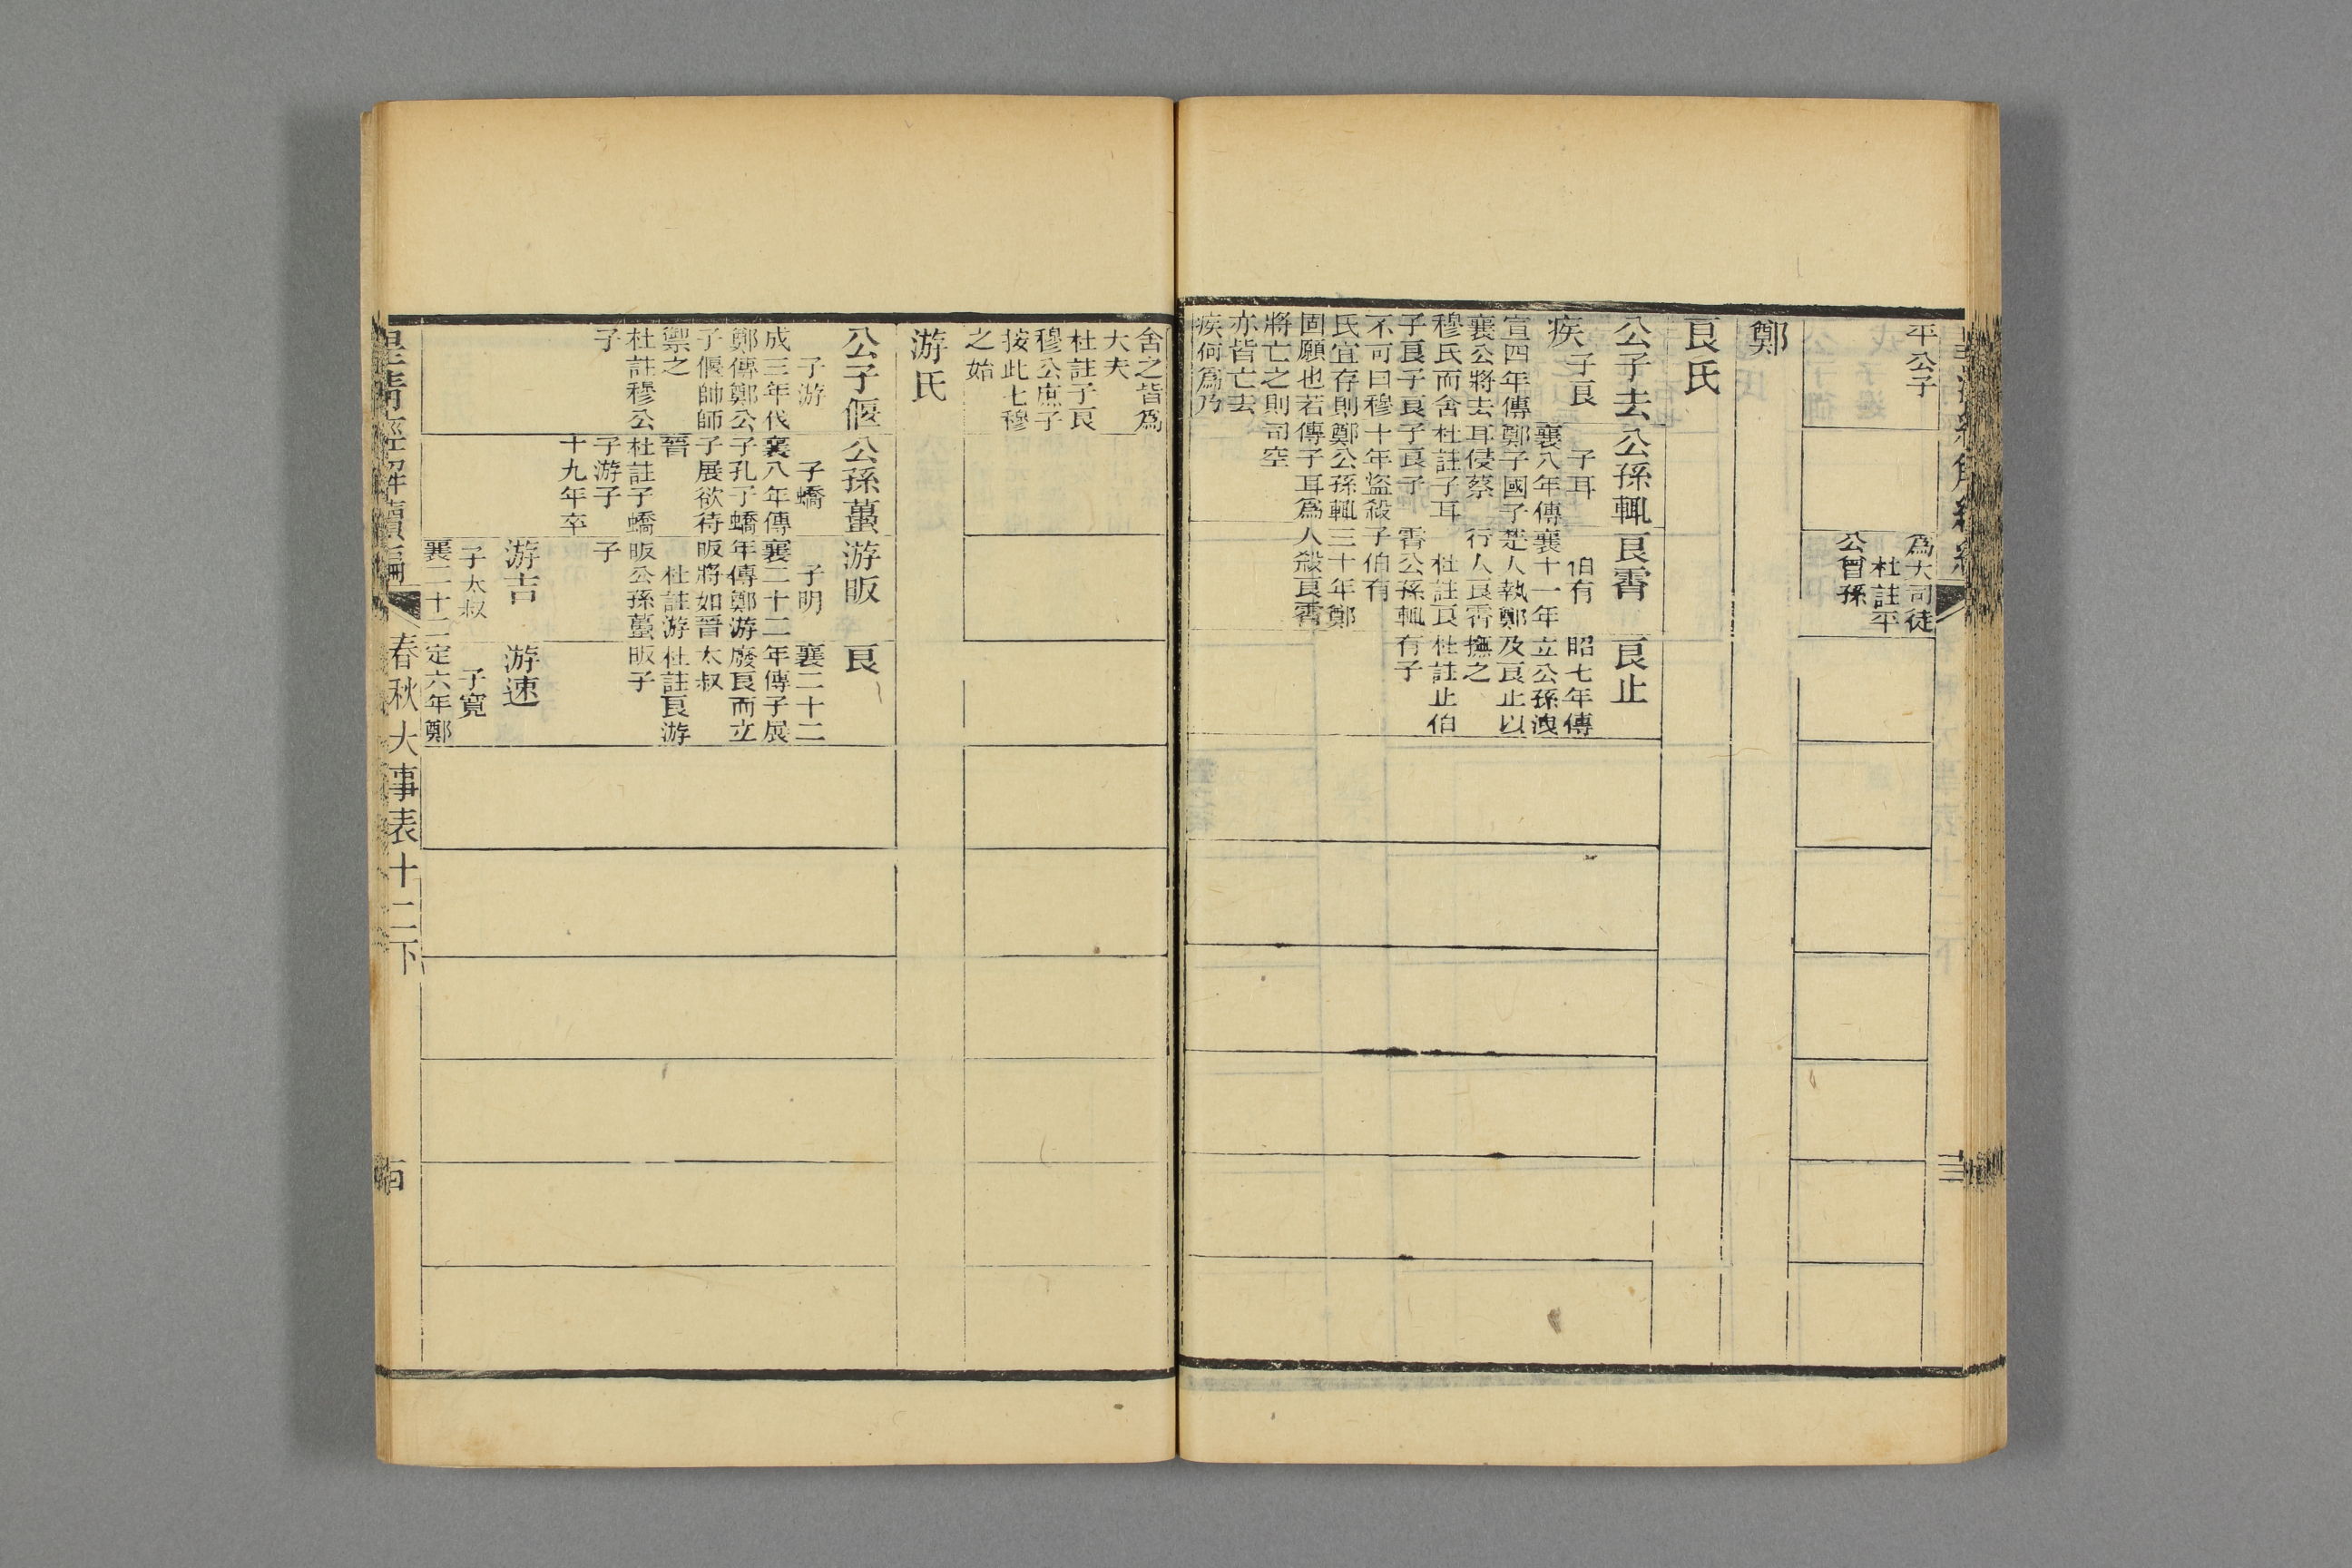 平公子
爲大司徒
杜註平
公曾孫
鄭
良氏
公子去
疾 子良
宣四年傳
襄公將去
穆氏而舍
子良子良
不可曰穆
氏宜存則
固願也若
將亡之則
亦皆亡去
疾何爲乃
公孫輒
子耳
襄八年傳
鄭子國子
耳侵蔡
杜註子耳
子良子
十年盜殺
鄭公孫輒
傳子耳爲
司空
良霄
伯有
襄十一年
楚人執鄭
行人良霄
杜註良
霄公孫輒
子伯有
三十年鄭
人殺良霄
良止
昭七年傳
立公孫洩
及良止以
撫之
杜註止伯
有子
舍之皆爲
大夫
杜註子良
穆公庶子
按此七穆
之始
游氏
公子偃
子游
成三年伐
鄭傳鄭公
子偃帥師
禦之
杜註穆公
子
公孫蠆
子蟜
襄八年傳
子孔子蟜
子展欲待
晉
杜註子蟜
子游子
十九年卒
游眅
子明
襄二十二
年傳鄭游
眅將如晉
杜註游
眅公孫蠆
子
良
襄二十二
年傳子展
廢良而立
太叔
杜註良游
眅子
游吉
子太叔
襄二十二
游速
子寬
定六年鄭
皇清經解續編
春秋大事表十二下